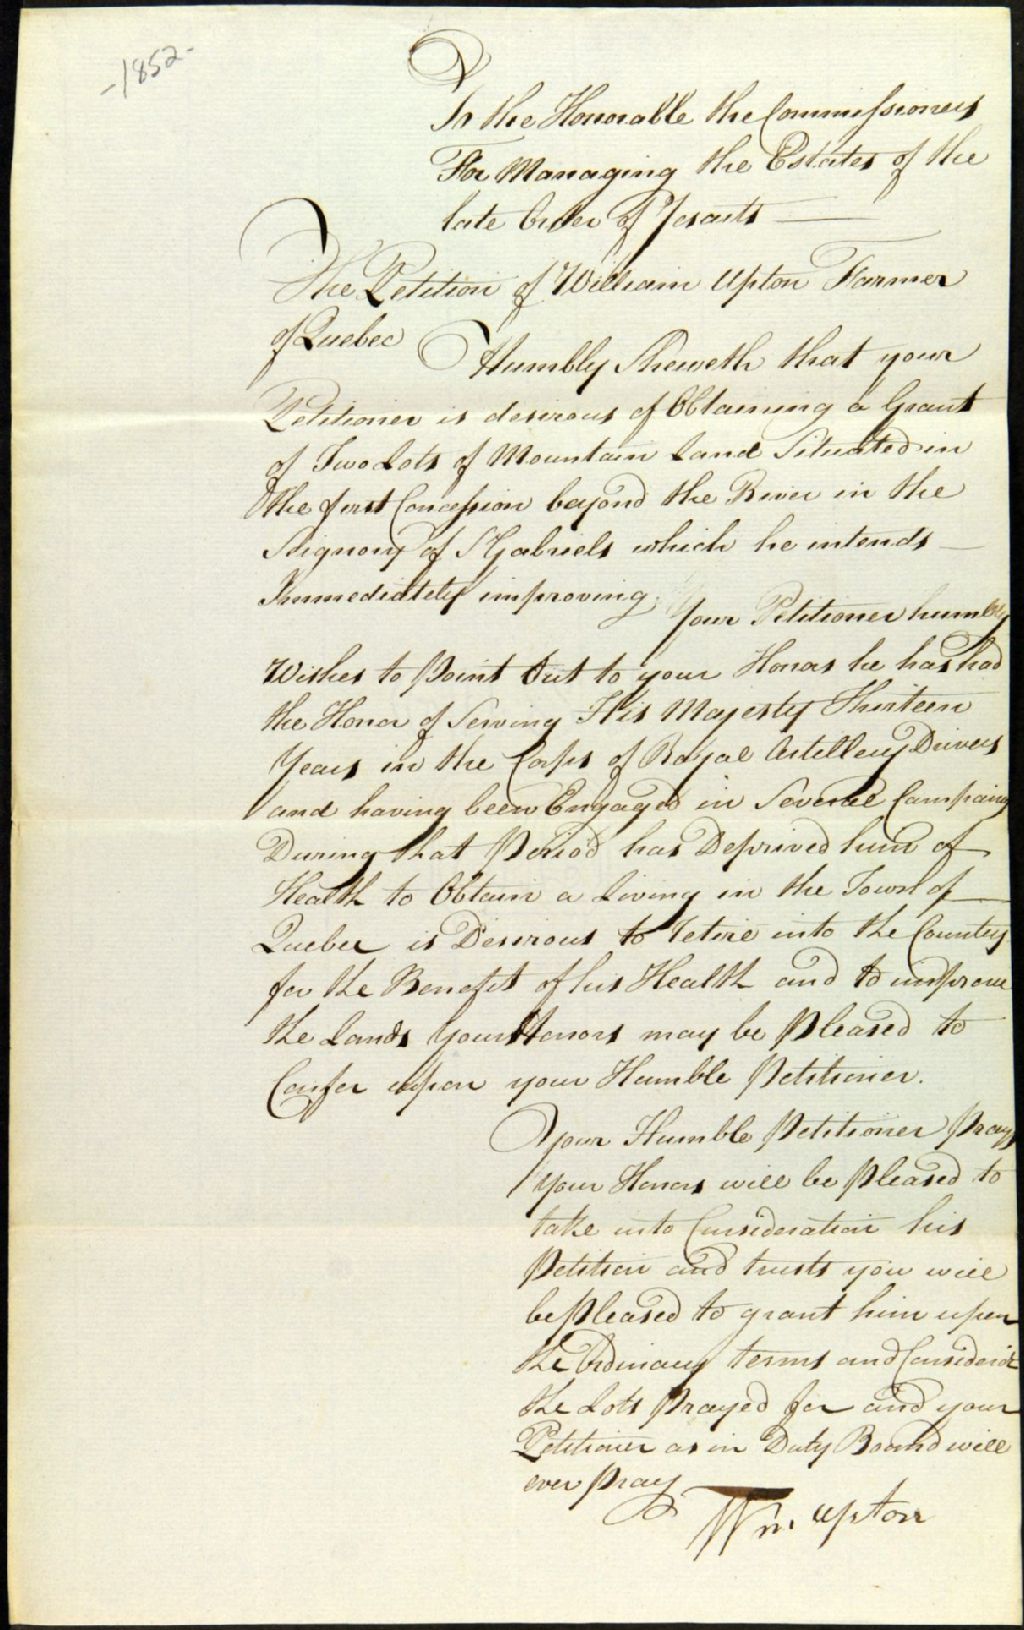 -1852-
To the Honorable the Commissioners
For Managing the Estates of the
late Order of Jesuits
The Petition of William Upton Farmer
of Quebec
Humbly Sheweth that your
Petitioner is desirous of Obtaining a Grant
of Two Lots of Mountain Land Situated in
the first Concession beyond the River in the
Signory of St Gabriels which he intends
Immediately improving.
Your Petitioner humbly
Wishes to Point Out to your Honors he has had
the Honor of Serving His Majesty Thirteen
Years in the Corps of Royal Artillery Drivers
and having been Engaged in Several Campaings
During that Period has Deprived him of
Health to Obtain a Living in the Town of
Quebec is Desirous to retire into the Country
for the Benefit of his Health and to improve
the Lands Your Honors may be Pleased to
Confer upon your Humble Petitioner.
Your Humble Petitioner Prays
Your Honors will be Pleased to
take into Consideration his
Petition and trusts you will
be Pleased to grant him upon
the Ordinary terms and
the Lots Prayed for and your
Petitioner as in Duty Bound will
ever Pray
Wm. Upton